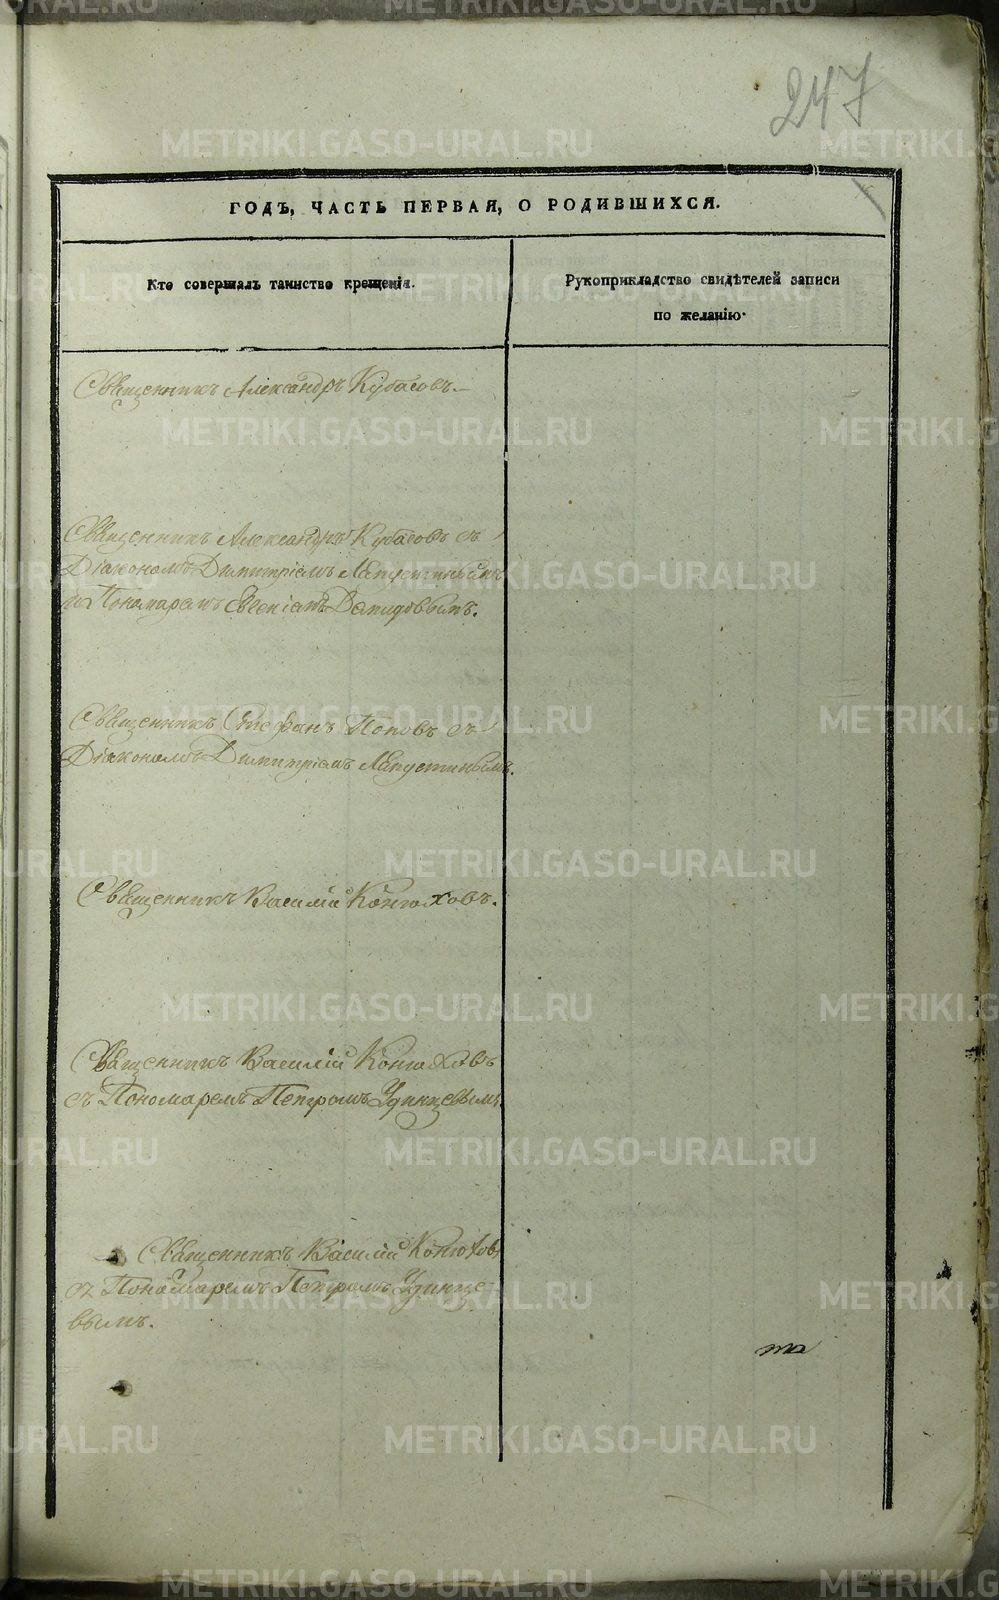 247
ГОДЪ, ЧАСТЬ ПЕРВАЯ, О РОДИВШИХСЯ.
Кто совершалъ таинство крещенія.
Рукоприкладство свидѣтелей записи
по желанію.
Священникъ Александръ Кубасовъ.
Священникъ Александръ Кубасовъ съ
Діакономъ Димитріемъ Лапустинымъ
и Пономаремъ Давидовымъ.
Священникъ Стефанъ Поповъ съ
Діакономъ Димитріемъ Лапустинымъ.
Священникъ Василій Конюховъ.
Священникъ Василій Конюховъ
съ Пономаремъ Петромъ Удинцевымъ.
Священникъ Василій Конюховъ
съ Пономаремъ Петромъ Удинце-
вымъ.
METRIKI.GASO-URAL.RU